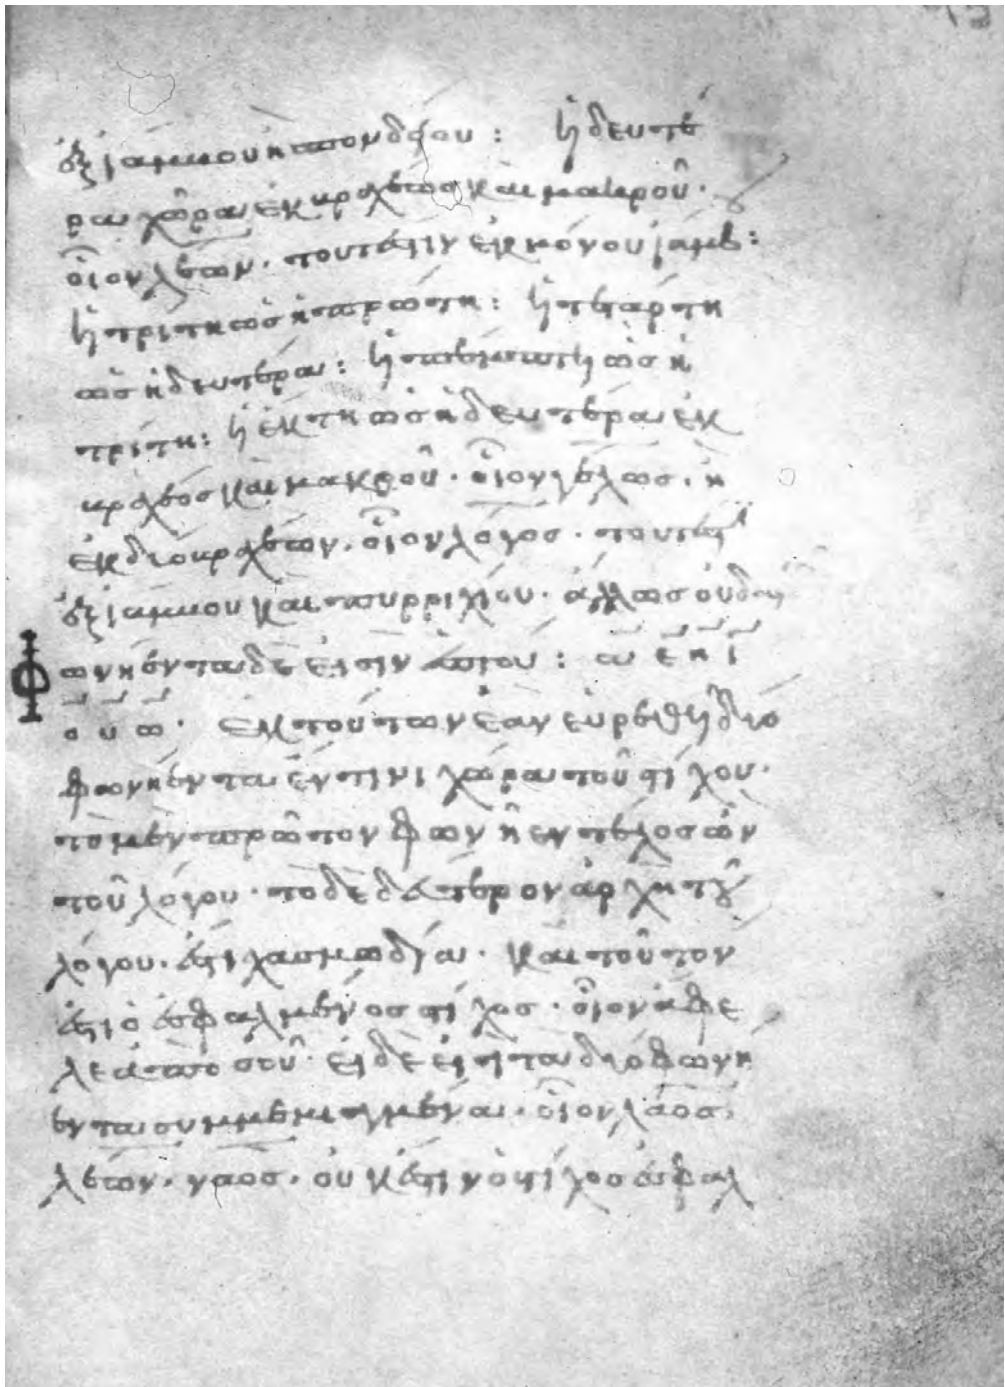 ἐξ ιάμμου κ σπονδείου : ἡ δευτέ
ρα χῶρα ἐκ κραχέως καὶ μακροῦ ·
οἷον λέων · τουτέστιν ἐκ μόνου ιάμβ :
ἡ τρίτη ὡς ἡ πρώτη : ἡ τετάρτη
ὡς ἡ δευτέρα : ἡ πέμπτη ὡς ἡ
τρίτη : ἡ ἕκτη ὡς ἡ δευτέρα ἐκ
κραχέος καὶ μακροῦ · οἷον γέλως · ἢ
ἐκ δύο κραχέων · οἷον λόγος · τουτέστ
ἐξ ιάμμου καὶ πυρριχίου · ἄλλως οὐδα
ωνήεντα δέ εἰσιν ἑπτά : α ε η ι
ο υ ω · ἐκ τούτων ἐὰν εὑρεθῇ δύο
φωνήεντα ἔν τινι χώρα τοῦ στίχου ·
τὸ μὲν πρῶτον φωνῆεν τέλος ὂν
τοῦ λόγου · τὸ δὲ δεύτερον ἀρχὴ τοῦ
λόγου · ἔστι χασμωδία · καὶ τοῦτον
ἐστι ὁ ἐσφαλμένος στίχος · οἷον ἄφε
λε ἀπὸ σοῦ · εἰ δέ εἰσι τὰ δύο φωνή
εντα συμμεμιγμένα · οἷον λαος ·
λέων · ναος · οὐκ ἔστιν ὁ στίχος ἐσφαλ